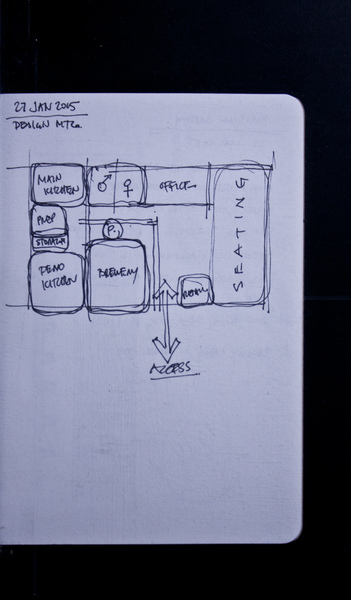 27 JAN 2005
DESIGN MTG.
MAIN
KITCHEN
♂ ♀
OFFICE
SEATING
PREP
STORAGE
P.
DEMO
KITCHEN
BREWERY
RETAIL
ACCESS